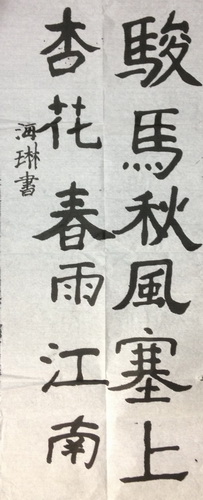 駿馬秋風塞上
杏花春雨江南
海琳書